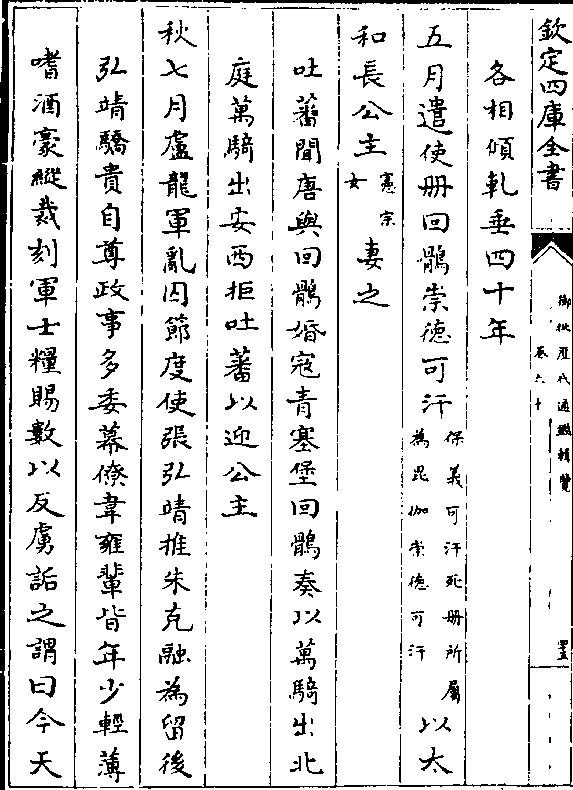 欽定四庫全書
御批歷代通鑑輯覽
卷六十
各相傾軋垂四十年
五月遣使册回鶻崇德可汗保義可汗死册所屬為毘伽崇德可汗以太
和長公主憲宗女妻之
吐蕃聞唐與回鶻婚寇青塞堡回鶻奏以萬騎出北
庭萬騎出安西拒吐蕃以迎公主
秋七月盧龍軍亂囚節度使張弘靖推朱克融為留後
弘靖驕貴自尊政事多委幕僚韋雍輩皆年少輕薄
嗜酒豪縱裁刻軍士糧賜數以反虜詬之謂曰今天